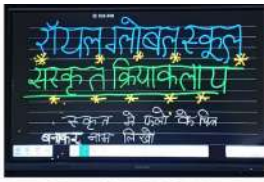 रॉयल ग्लोबल स्कूल
संस्कृत क्रियाकलाप
संस्कृत में फलों के चित्र
बनाकर नाम लिखो